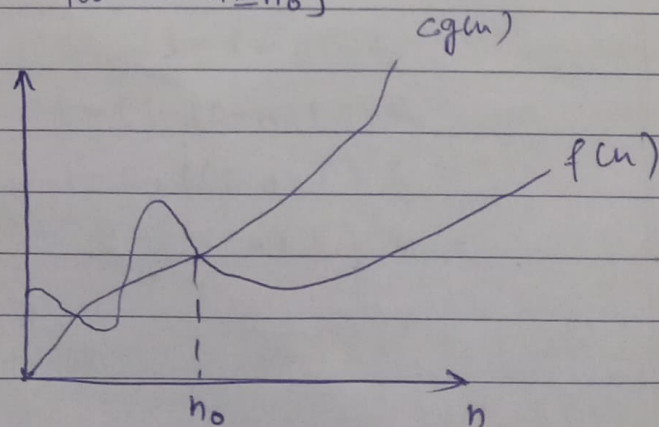 ≥n₀}
cg(n)
f(n)
n₀
n